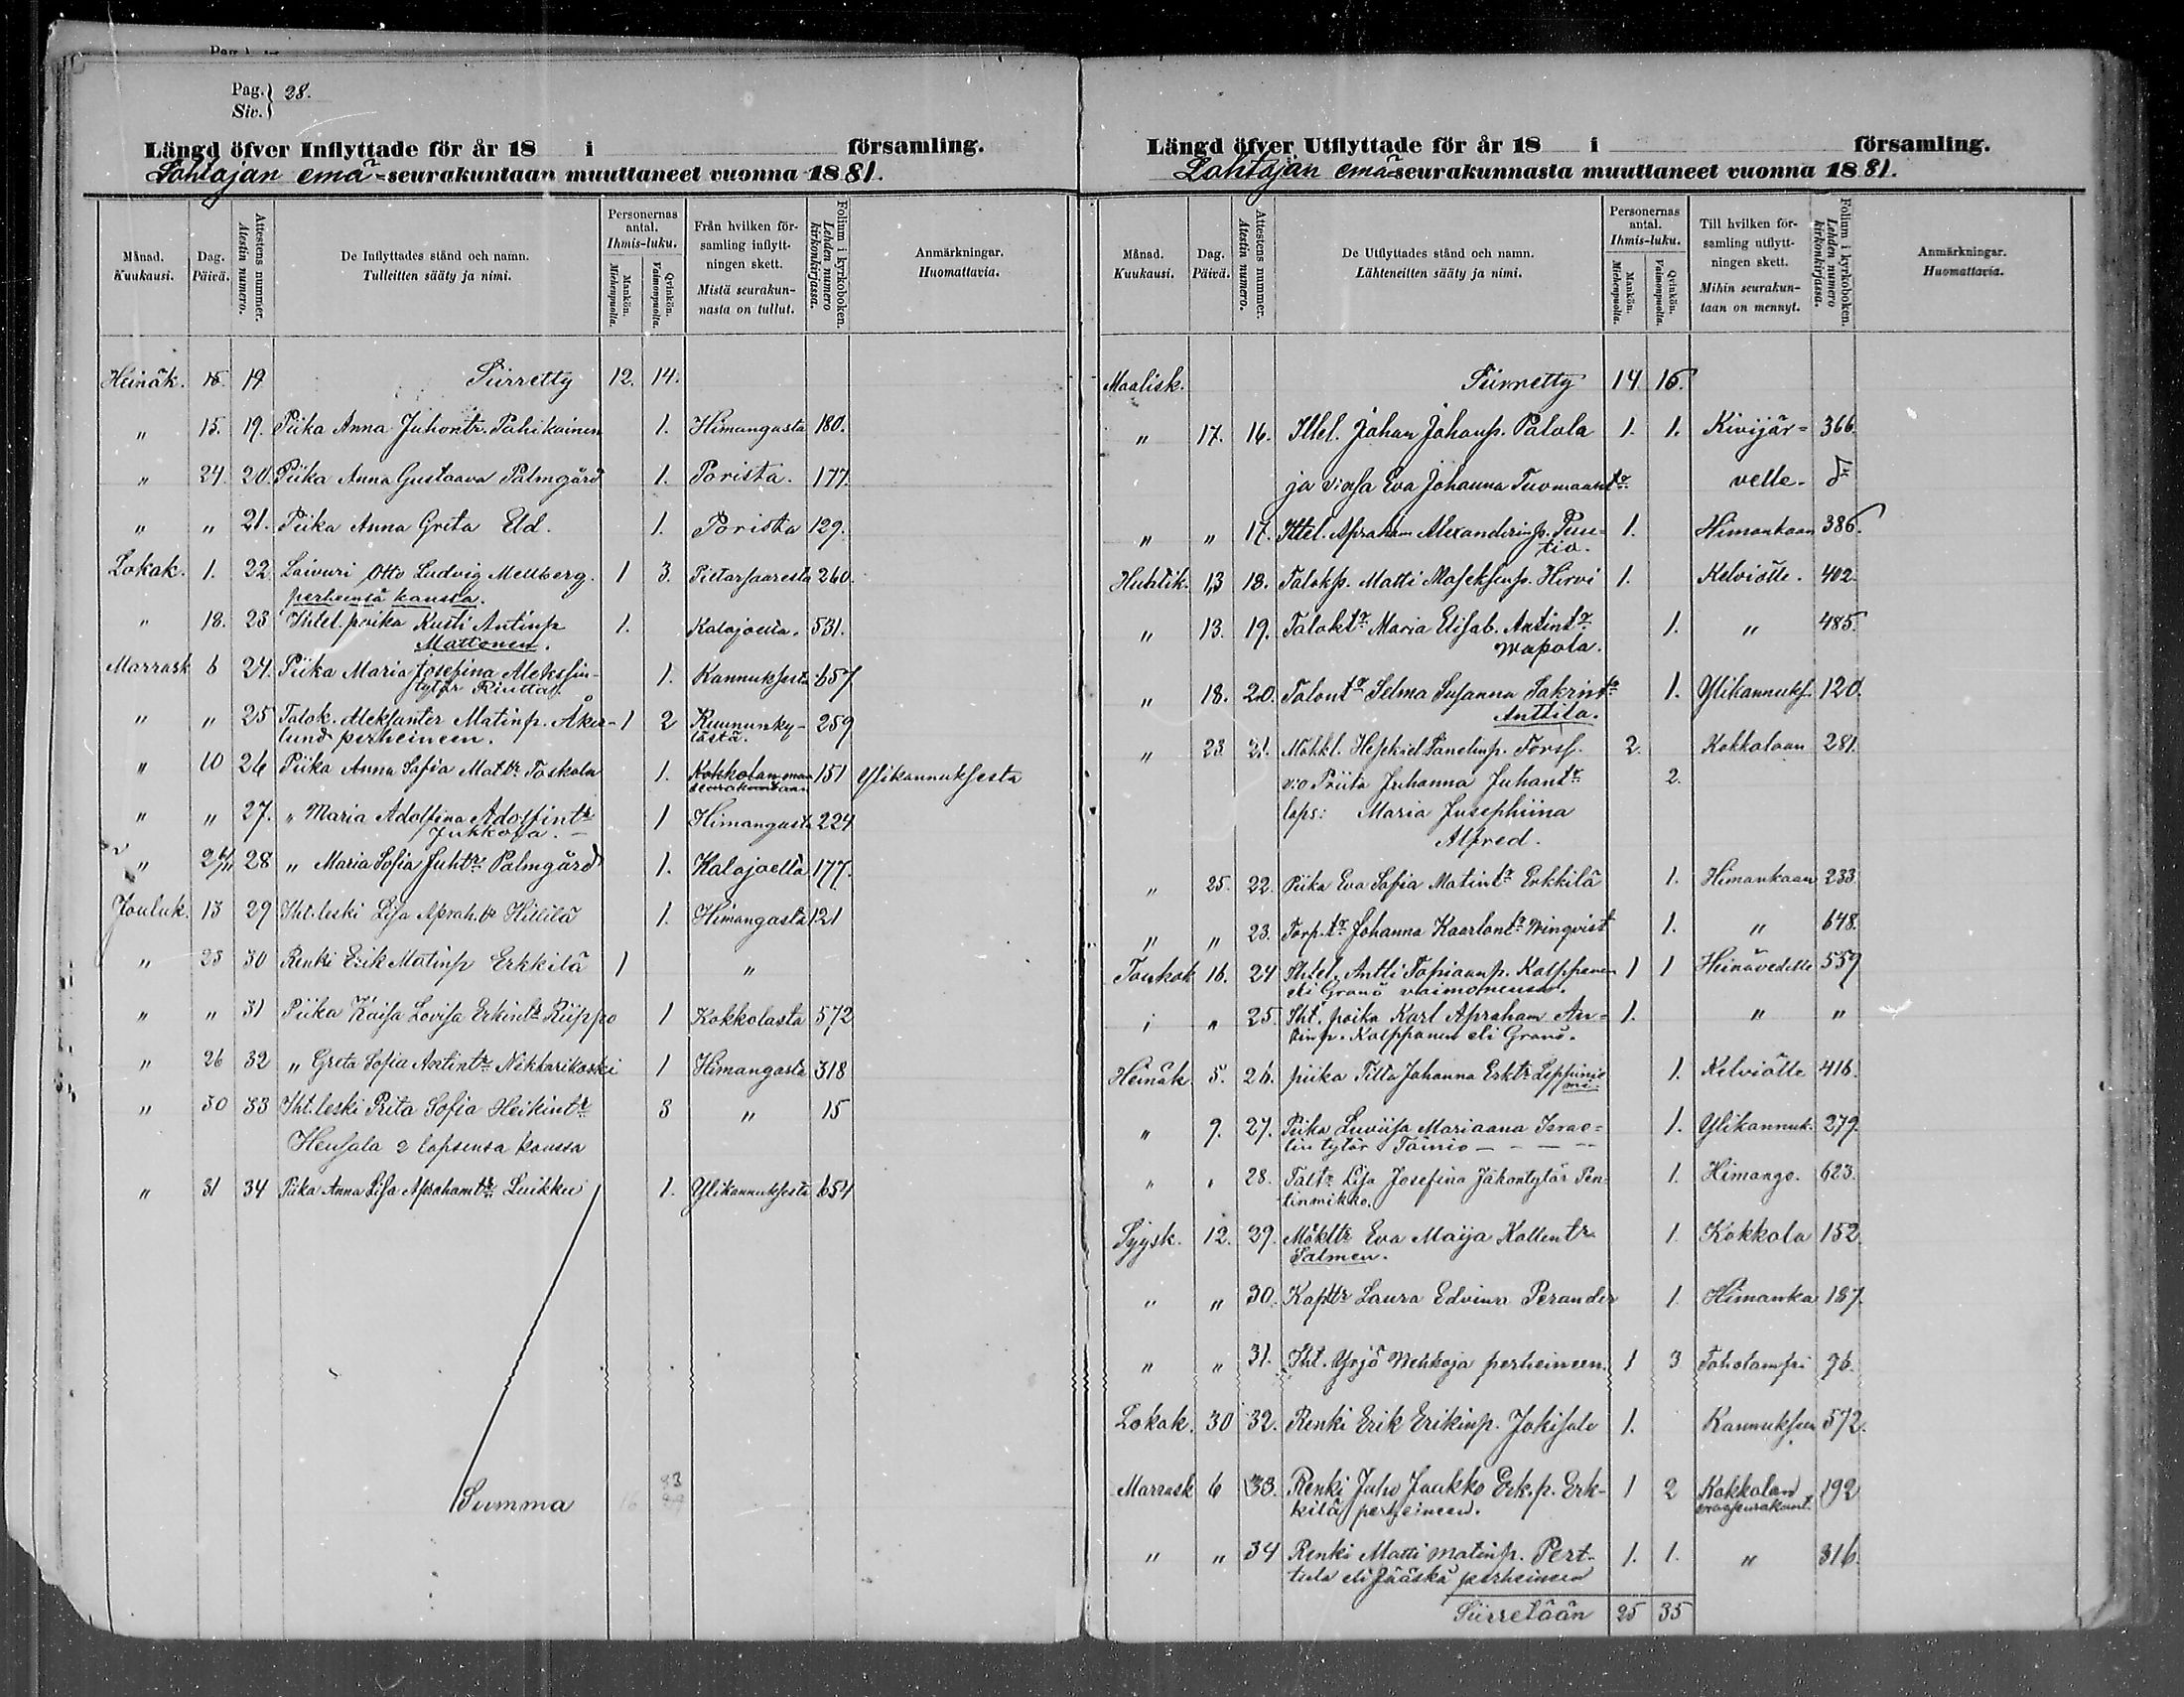 Pag. 28.
Siv.
Längd öfver Inflyttade för år 18 i församling.
Lohtajan emä-seurakuntaan muuttaneet vuonna 1881.
Månad. Kuukausi. Dag. Päivä. Attestens nummer. Atestin numero. De Inflyttades stånd och namn. Tulleitten sääty ja nimi. Personernas antal. Ihmis-luku. Mankön. Miehenpuolta. Qvinkön. Vaimonpuolta. Från hvilken församling inflyttningen skett. Mistä seurakunnasta on tullut. Folium i kyrkoboken. Lehden numero kirkonkirjassa. Anmärkningar. Huomattavia.
Heinäk. 15. 19 Siirretty 12. 14.
" 15. 19. Piika Anna Juhontr. Pahikainen 1. Himangasta 180.
" 24. 20. Piika Anna Gustaava Palmgård 1. Porista. 177.
" " 21. Piika Anna Greta Eld. 1. Porista 129.
Lokak. 1. 22 Laivuri Otto Ludvig Mellberg. 1 3. Pietarsaaresta 260.
perheensä kanssa.
" 18. 23 Ihtel. poika Kusti Antinp 1. Kalajoelta. 531.
Mattonen.
Marrask 6 24. Piika Maria Josefina Aleksin- 1. Kannuksesta 657
tytär Riutta
" " 25 Talok. Aleksanter Matinp. Åker- 1 2 Kruununky- 259
lund perheineen. lästä.
" 10 26 Piika Anna Sofia Mattr. Toskala 1. Kokkolan maa 151 Ylikannuksesta
seurakuntaan
" " 27. " Maria Adolfina Adolfintr. 1 Himangasta 224
Jukkola.
" 24/11 28 " Maria Sofia Juhtr. Palmgård 1. Kalajoelta 177.
Jouluk. 13 29 Iht. leski Lisa Aprah.tr Hillilä 1. Himangasta 121
" 23 30 Renki Erik Matinp Erkkilä 1 "
" " 31 Piika Kaisa Lovisa Erkintr. Riippo 1 Kokkolasta 572
" 26 32 " Greta Sofia Antintr. Nikkarikoski 1 Himangasta 318
" 30 33 Iht. leski Prita Sofia Heikintr. 3 " 15
Heusala 2 lapsensa kanssa
" 31 34 Piika Anna Lisa Aprahamtr. Luikku 1. Ylikannuksesta 654
33
Summa 16 29
Längd öfver Utflyttade för år 18 i församling.
Lohtajan emä-seurakunnasta muuttaneet vuonna 1881.
Månad. Kuukausi. Dag. Päivä. Attestens nummer. Atestin numero. De Utflyttades stånd och namn. Lähteneitten sääty ja nimi. Personernas antal. Ihmis-luku. Mankön. Miehenpuolta. Qvinkön. Vaimonpuolta. Till hvilken församling utflyttningen skett. Mihin seurakuntaan on mennyt. Folium i kyrkoboken. Lehden numero kirkonkirjassa. Anmärkningar. Huomattavia.
Maalisk. Siirretty 14. 15.
" 17. 16. Ittel. Johan Johanp. Palola 1. 1. Kivijär= 366.
ja v:osa Eva Johanna Tuomaantr. velle.
" " 17. Ittel. Apraham Alexanderinp. Puu- 1. Himankaan 386.
tio.
Huhtik. 13 18. Talokp. Matti Moseksenp. Hirvi 1. Kelviölle. 402.
" 13. 19. Taloktr. Maria Elisab. Antintr. 1. " 485.
Wapola.
" 18. 20. Talontr. Selma Susanna Sakrintr. 1. Ylikannuks. 120.
Anttila.
" 23 21. Mökkl. Heskiel Tanelinp. Forss. 2. Kokkolaan 281.
v:o Priita Juhanna Juhantr. 2.
laps: Maria Jusephiina
Alfred.
" 25. 22. Piika Eva Sofia Matintr. Erkkilä 1. Himankaan 233
" " 23. Torp.tr. Johanna Kaarlontr. Winqvist 1. " 648.
Toukok 16. 24 Ihtel. Antti Topiaanp. Kolppanen 1 1 Heinävedelle 559
eli Granö vaimoneensa.
" " 25. Iht. poika Karl Apraham An= 1. " "
tinp. Kolppanen eli Granö.
Heinäk. 5. 26. piika Tilta Johanna Erktr. Leppinie 1. Kelviölle 416.
mi
" 9. 27. Piika Luviisa Mariaana Israe= 1. Ylikannuk. 279.
lin tytär Tainio
" " 28. Taltr. Lisa Josefina Jakontytär Pen- 1. Himango. 623.
tinmikko.
Syysk. 12. 29. Mökltr. Eva Maija Kallentr. 1 Kokkola 152.
Salmen.
" " 30. Kapttr. Laura Edvina Perander 1. Himanka 187.
" " 31. Iht. Yrjö Wehkoja perheineen. 1 3 Toholampi 96.
Lokak. 30 32. Renki Erik Erikinp. Jokisalo 1. Kannuksen 572.
Marrask 6 33. Renki Juho Jaakko Erk.p. Erk- 1 2 Kokkolan 192
kilä perheineen. maaseurakunt.
" " 34 Renki Matti Matinp. Pert- 1. 1. " 316.
tula eli Jääskä perheineen
Siirretään 25 35